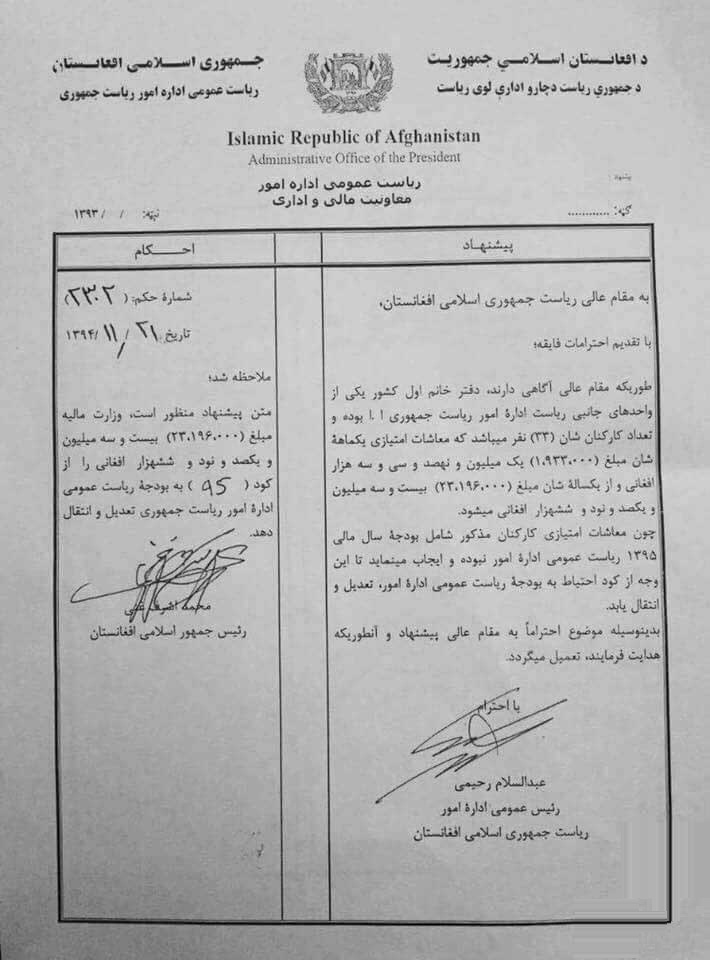 د افغانستان اسلامي جمهوریت
د جمهوري ریاست دچارو ادارې لوی ریاست
جمهوری اسلامی افغانستان
ریاست عمومی اداره امور ریاست جمهوری
Islamic Republic of Afghanistan
Administrative Office of the President
ریاست عمومی اداره امور
معاونیت مالی و اداری
پیشنهاد
ګڼه: ............
نېټه: / / ۱۳۹۳
پیشنهاد
به مقام عالی ریاست جمهوری اسلامی افغانستان،
با تقدیم احترامات فایقه؛
طوریکه مقام عالی آگاهی دارند، دفتر خانم اول کشور یکی از
واحدهای جانبی ریاست ادارهٔ امور ریاست جمهوری ا.ا بوده و
تعداد کارکنان شان (۳۳) نفر میباشد که معاشات امتیازی یکماههٔ
شان مبلغ (۱،۹۳۳،۰۰۰) یک میلیون و نهصد و سی و سه هزار
افغانی و از یکسالهٔ شان مبلغ (۲۳،۱۹۶،۰۰۰) بیست و سه میلیون
و یکصد و نود و ششهزار افغانی میشود.
چون معاشات امتیازی کارکنان مذکور شامل بودجهٔ سال مالی
۱۳۹۵ ریاست عمومی ادارهٔ امور نبوده و ایجاب مینماید تا این
وجه از کود احتیاط به بودجهٔ ریاست عمومی ادارهٔ امور، تعدیل و
انتقال یابد.
بدینوسیله موضوع احتراماً به مقام عالی پیشنهاد و آنطوریکه
هدایت فرمایند، تعمیل میگردد.
با احترام
عبدالسلام رحیمی
رئیس عمومی ادارهٔ امور
ریاست جمهوری اسلامی افغانستان
احکام
شمارهٔ حکم: (۲۳۰۲)
تاریخ ۲۱/ ۱۱/ ۱۳۹۴
ملاحظه شد؛
متن پیشنهاد منظور است، وزارت مالیه
مبلغ (۲۳،۱۹۶،۰۰۰) بیست و سه میلیون
و یکصد و نود و ششهزار افغانی را از
کود (۹۵) به بودجهٔ ریاست عمومی
ادارهٔ امور ریاست جمهوری تعدیل و انتقال
دهد.
محمد اشرف غنی
رئیس جمهور اسلامی افغانستان